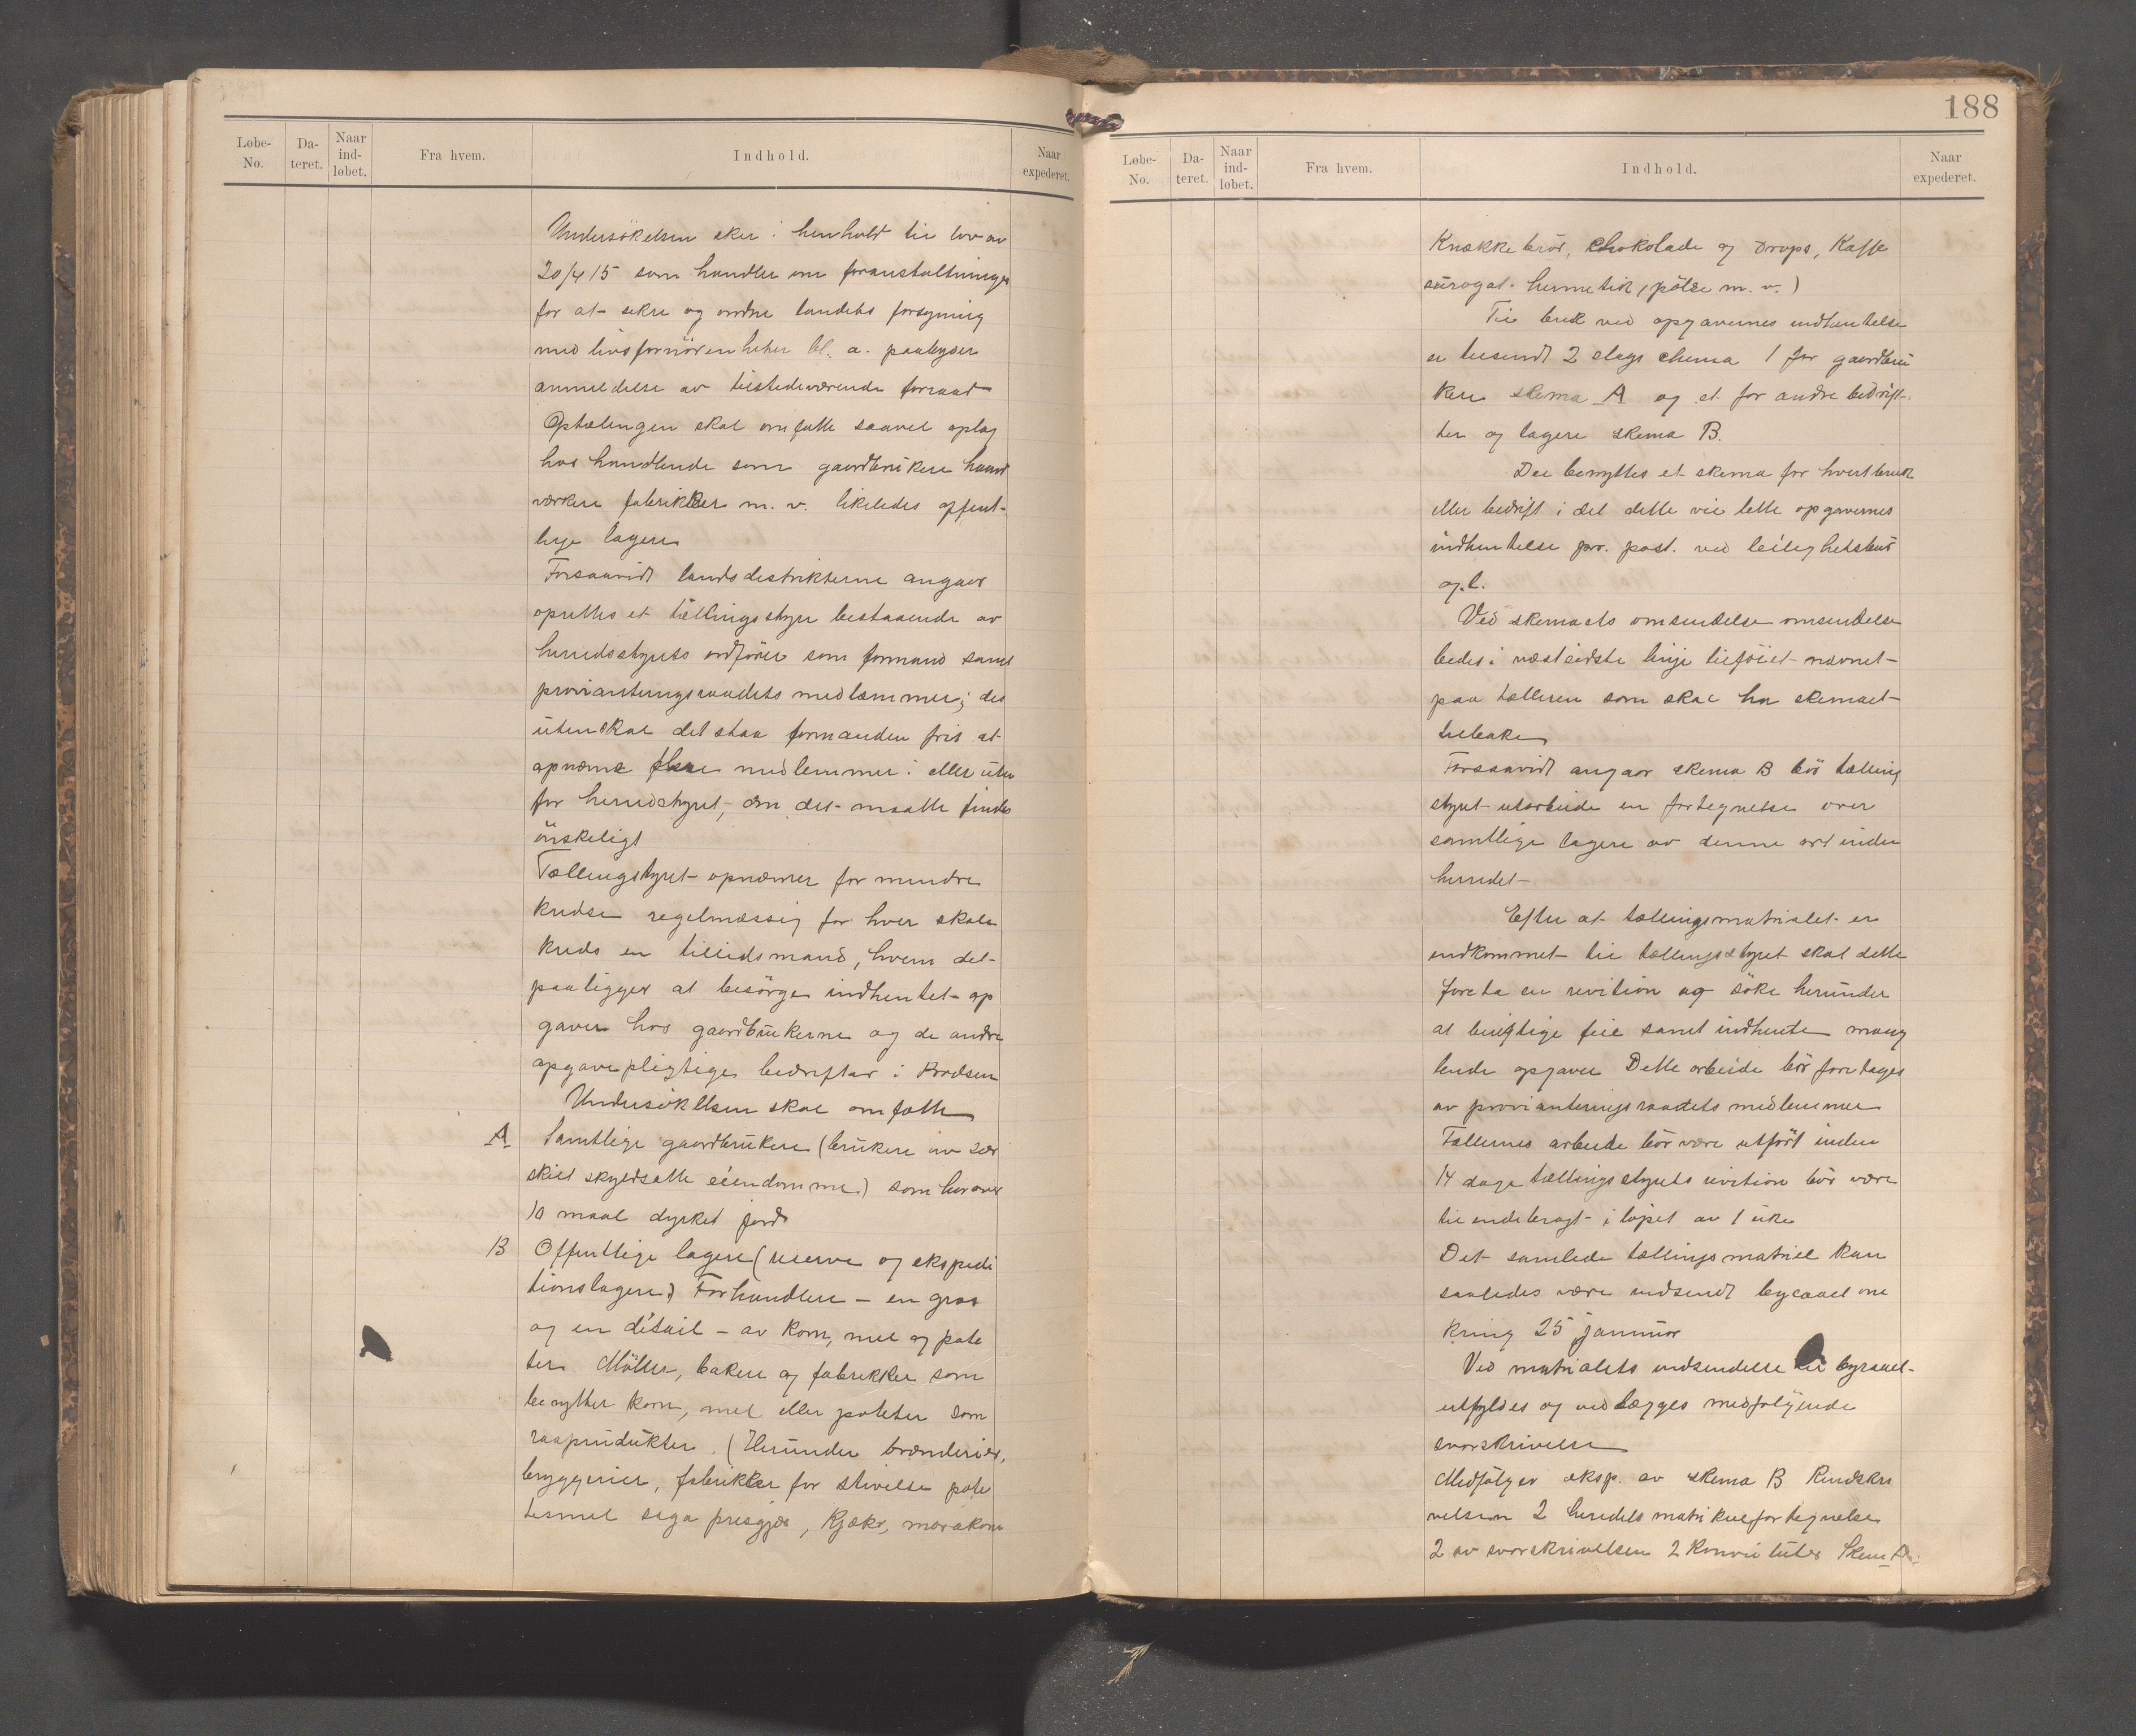 Løbe-No.
Da-teret.
Naar ind-løbet.
Fra hvem.
Indhold.
Naar expederet.
Undersökelsen sker i henhold til lov av
20/4 15 som handler om foranstaltninger
for at sikre og ordne landets forsyning
med livsfornörenheter bl. a. paabyder
anmeldelse av tilstedeværende forraad
Optælingen skal omfatte saavel oplag
hos handlende som gaardbrukere haand
værkere fabrikker m. v. likeledes offent-
lige lagere
Forsaavidt landsdistrikterne angaar
oprettes et tællingsstyre bestaaende av
herredsstyrets ordförer som formand samt
provianteringsraadets medlæmmer; des
uten skal det staa formanden frit at
opnævne flere medlemmer i eller uten
for herredstyret, om det maatte findes
önskeligt
Tællingstyret opnævner for mindre
kredse regelmæssig for hver skole
kreds en tillidsmand, hvem det
paaligger at besörge indhentet op
gaver hos gaardbrukerne og de andre
opgavepligtige bedrifter i Kredsen
Undersökelsen skal omfatte
A Samtlige gaardbrukere (brukere av sær
skilt skyldsatte eiendomme) som har over
10 maal dyrket jord
B Offentlige lagere (reserve og ekspedi
tionslagere) Forhandlere - en gros
og en détail - av korn, mel og pote
ter Möller, bakere og fabrikker som
benytter korn, mel eller poteter som
raaprodukter. (Herunder brænderier,
bryggerier, fabrikker for stivelse pote
tesmel sago presgjær, Kjæks, marakoni
188
Løbe-No.
Da-teret.
Naar ind-løbet.
Fra hvem.
Indhold.
Naar expederet.
Knækkebröd, Chokolade og Drops, Kaffe
surogat hermetik, pölse m. v.)
Til bruk ved opgavernes indhentelse
er tilsendt 2 slags chema 1 for gaardbru
kere skema A og et for andre bedrift-
ter og lagere skema B.
Der benyttes et skema for hvert bruk
eller bedrift i det dette vil lette opgavernes
indhentelse pr. post. ved leilighetsbud
o.l.
Ved skemaets omsendelse omsendelse
bedes i næstsidste linje tilföiet navnet
paa tælleren som skal ha skemaet
tilbake
Forsaavidt angaar skema B bör tælling
styret utarbeide en fortegnelse over
samtlige lagere av denne art inden
herredet
Efter at tællingsmatrialet er
indkommet til tællingsstyret skal dette
foreta en revition og söke herunder
at berigtige feil samt indhente mang
lende opgaver Dette arbeide bör foretages
av provianteringsraadets medlemmer
Tællernes arbeide bör være utfört inden
14 dage tællingsstyrets revition bör være
til endebragt i löpet av 1 uke
Det samlede tællingsmatriel kan
saaledes være indsendt byraaet om
kring 25 januar
Ved matrialets indsendelse til byraaet
utfyldes og vedlægges medfölgende
svarskrivelse
Medfölger eksp. av skema B Rundskri
velsen 2 herredets matrikulfortegnelse
2 av svarskrivelsen 2 Konvolutter Skema A